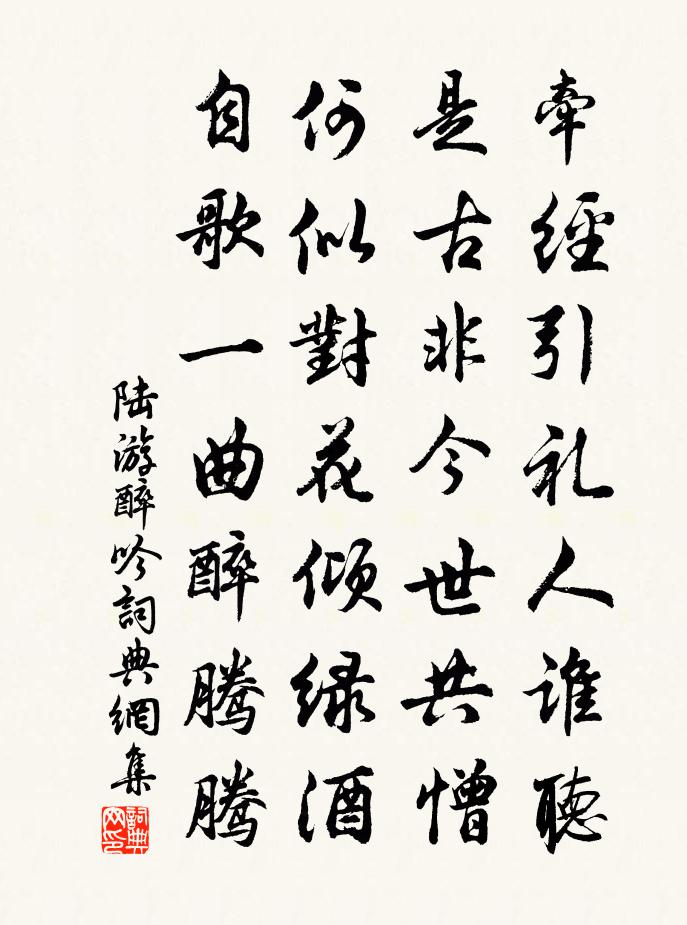 牽經引礼人誰聽
是古非今世共憎
何似對花倾緑酒
自歌一曲醉騰騰
陆游醉吟詞典網集
詞典网印